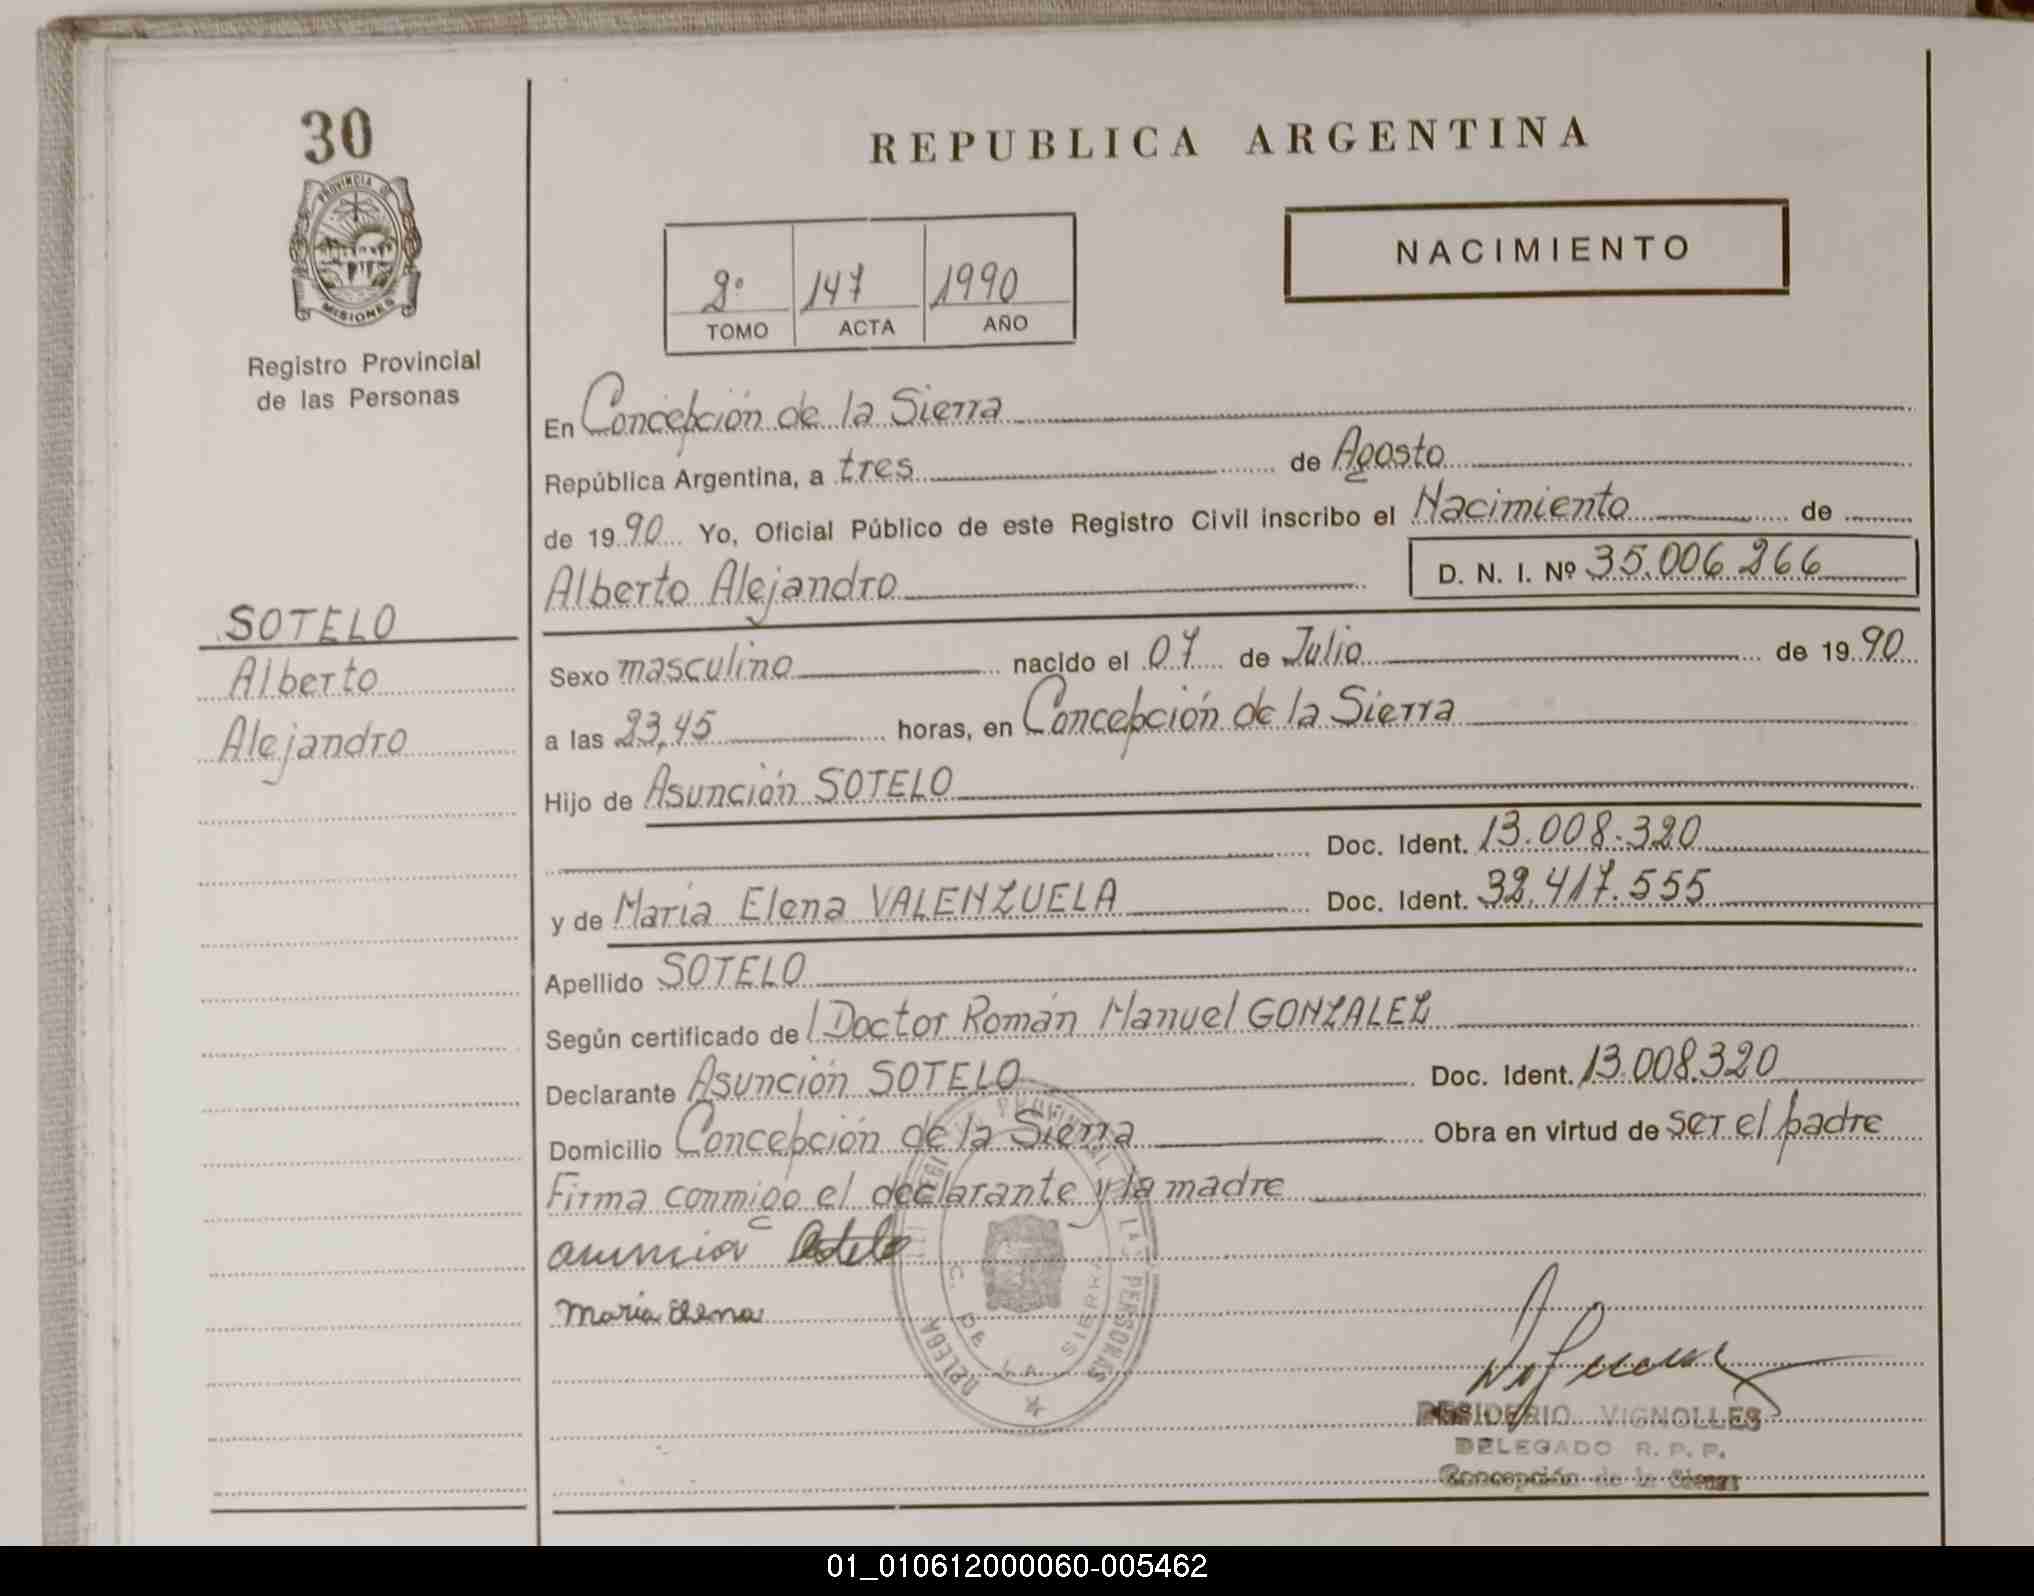 30
PROVINCIA DE
MISIONES
Registro Provincial
de las Personas
SOTELO
Alberto
Alejandro
REPUBLICA ARGENTINA
NACIMIENTO
2º 147 1990
TOMO ACTA AÑO
En Concepción de la Sierra
República Argentina, a tres de Agosto
de 1990 Yo, Oficial Público de este Registro Civil inscribo el Nacimiento de
Alberto Alejandro D. N. I. Nº 35.006.266
Sexo masculino nacido el 07 de Julio de 1990
a las 23,45 horas, en Concepción de la Sierra
Hijo de Asunción SOTELO
Doc. Ident. 13.008.320
y de María Elena VALENZUELA Doc. Ident. 32.417.555
Apellido SOTELO
Según certificado de Doctor Román Manuel GONZALEZ
Declarante Asunción SOTELO Doc. Ident. 13.008.320
Domicilio Concepción de la Sierra Obra en virtud de ser el padre
Firma conmigo el declarante y la madre
asuncion Sotelo
maria elena
PROVINCIAL LAS PERSONAS
C. DE LA SIERRA
DESIDERIO VIGNOLLES
DELEGADO R. P. P.
Concepción de la Sierra
01_010612000060-005462